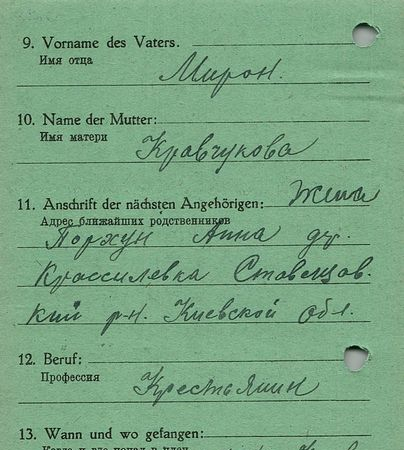 9. Vorname des Vaters.
Имя отца
Мирон.
10. Name der Mutter:
Имя матери
Кравчукова
11. Anschrift der nächsten Angehörigen: Жена
Адрес ближайших родственников
Порхун Анна др.
Крассилевка Ставещов.
кий р-н. Киевской обл.
12. Beruf:
Профессия
Крестьянин
13. Wann und wo gefangen:
Когда и где попал в плен